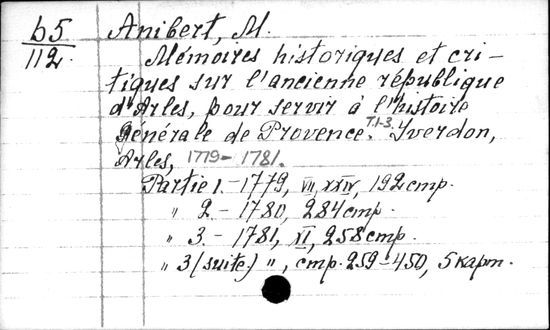 b5 Anibert, M.
112. Mémoires historiques et cri-
tiques sur l'ancienne république
d'Arles, pour servir à l'histoire
générale de Provence. T.1-3. Yverdon,
Arles, 1779-1781.
Partie 1. - 1779, VII, XXIV, 192 стр.
" 2. - 1780, 284 стр.
" 3. - 1781, XI, 258 стр.
" 3 (suite.) ", стр. 259-450, 5 карт.